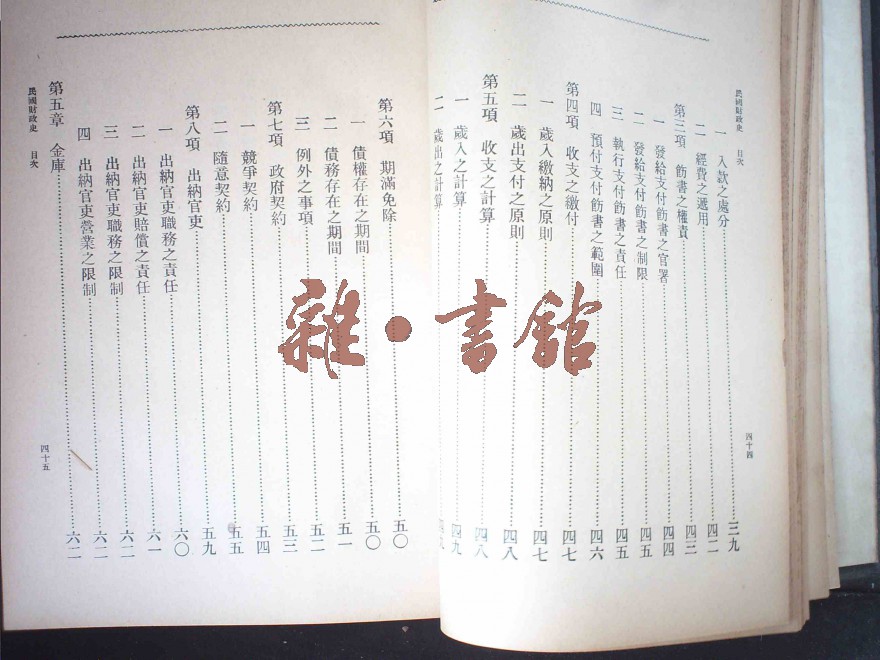 民國財政史 目次
一 入款之處分 三九
二 經費之遞用 四二
第三項 飭書之權責 四三
一 發給支付飭書之官署 四四
二 發給支付飭書之制限 四五
三 執行支付飭書之責任 四五
四 預付支付飭書之範圍 四六
第四項 收支之繳付 四七
一 歲入繳納之原則 四七
二 歲出支付之原則 四八
第五項 收支之計算 四八
一 歲入之計算 四九
二 歲出之計算 四九
四十四
第六項 期滿免除 五〇
一 債權存在之期間 五〇
二 債務存在之期間 五一
三 例外之事項 五二
第七項 政府契約 五三
一 競爭契約 五四
二 隨意契約 五五
第八項 出納官吏 五九
一 出納官吏職務之責任 六〇
二 出納官吏賠償之責任 六一
三 出納官吏職務之限制 六二
四 出納官吏營業之限制 六二
第五章 金庫 六二
民國財政史 目次
四十五
雜·書館